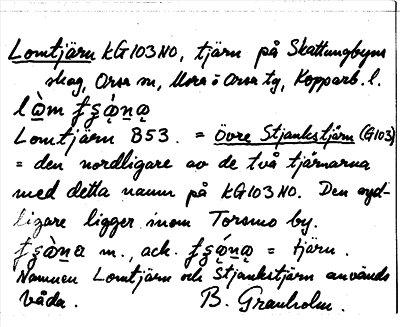 Lomtjärn KG103NO, tjärn på Skattungbyns
skog, Orsa sn, Mora o Orsa tg, Kopparb. l.
Lomtjärn B53. = Övre Stjankstjärn (G103)
= den nordligare av de två tjärnarna
med detta namn på KG103NO. Den syd-
ligare ligger inom Torsmo by.
m., ack. = tjärn.
Namnen Lomtjärn och Stjankstjärn används
båda. B. Granholm.